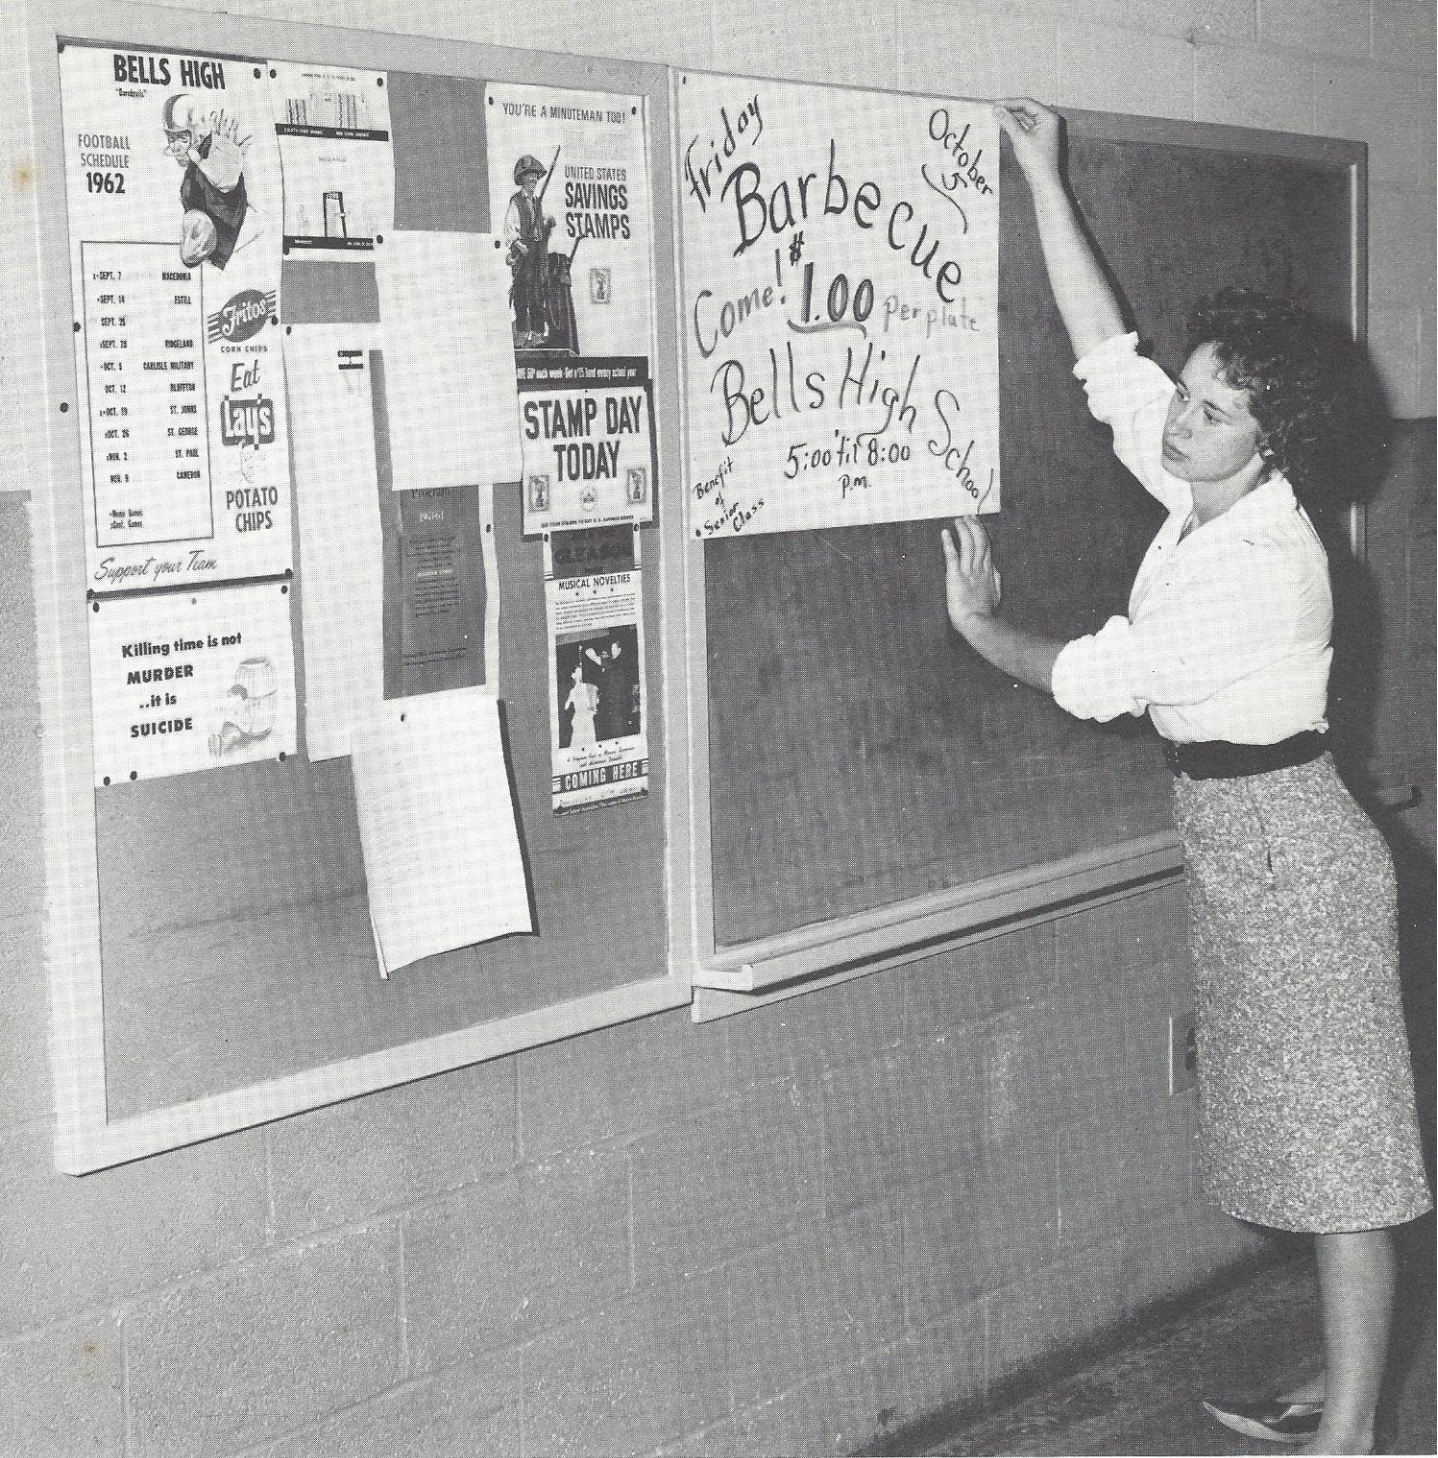 BELLS HIGH
"Daredevils"
FOOTBALL
SCHEDULE
1962
x-SEPT. 7 MACEDONIA
SEPT. 14 ESTILL
SEPT. 21
SEPT. 28 RIDGELAND
OCT. 5 CARLISLE MILITARY
OCT. 12 BLUFFTON
OCT. 19 ST. JOHNS
OCT. 26 ST. GEORGE
NOV. 2 ST. PAUL
NOV. 9 CAMERON
Home Games
Conf. Games
Fritos
CORN CHIPS
Eat
Lay's
POTATO
CHIPS
Support your Team
Killing time is not
MURDER
..it is
SUICIDE
Program
YOU'RE A MINUTEMAN TOO!
UNITED STATES
SAVINGS
STAMPS
each week-Get a bond every school year
STAMP DAY
TODAY
GLEASON
MUSICAL NOVELTIES
COMING HERE
Friday
October
5
Barbecue
Come! $1.00 per plate
Bells High School
5:00 'til 8:00
P.M.
Benefit
of
Senior
Class